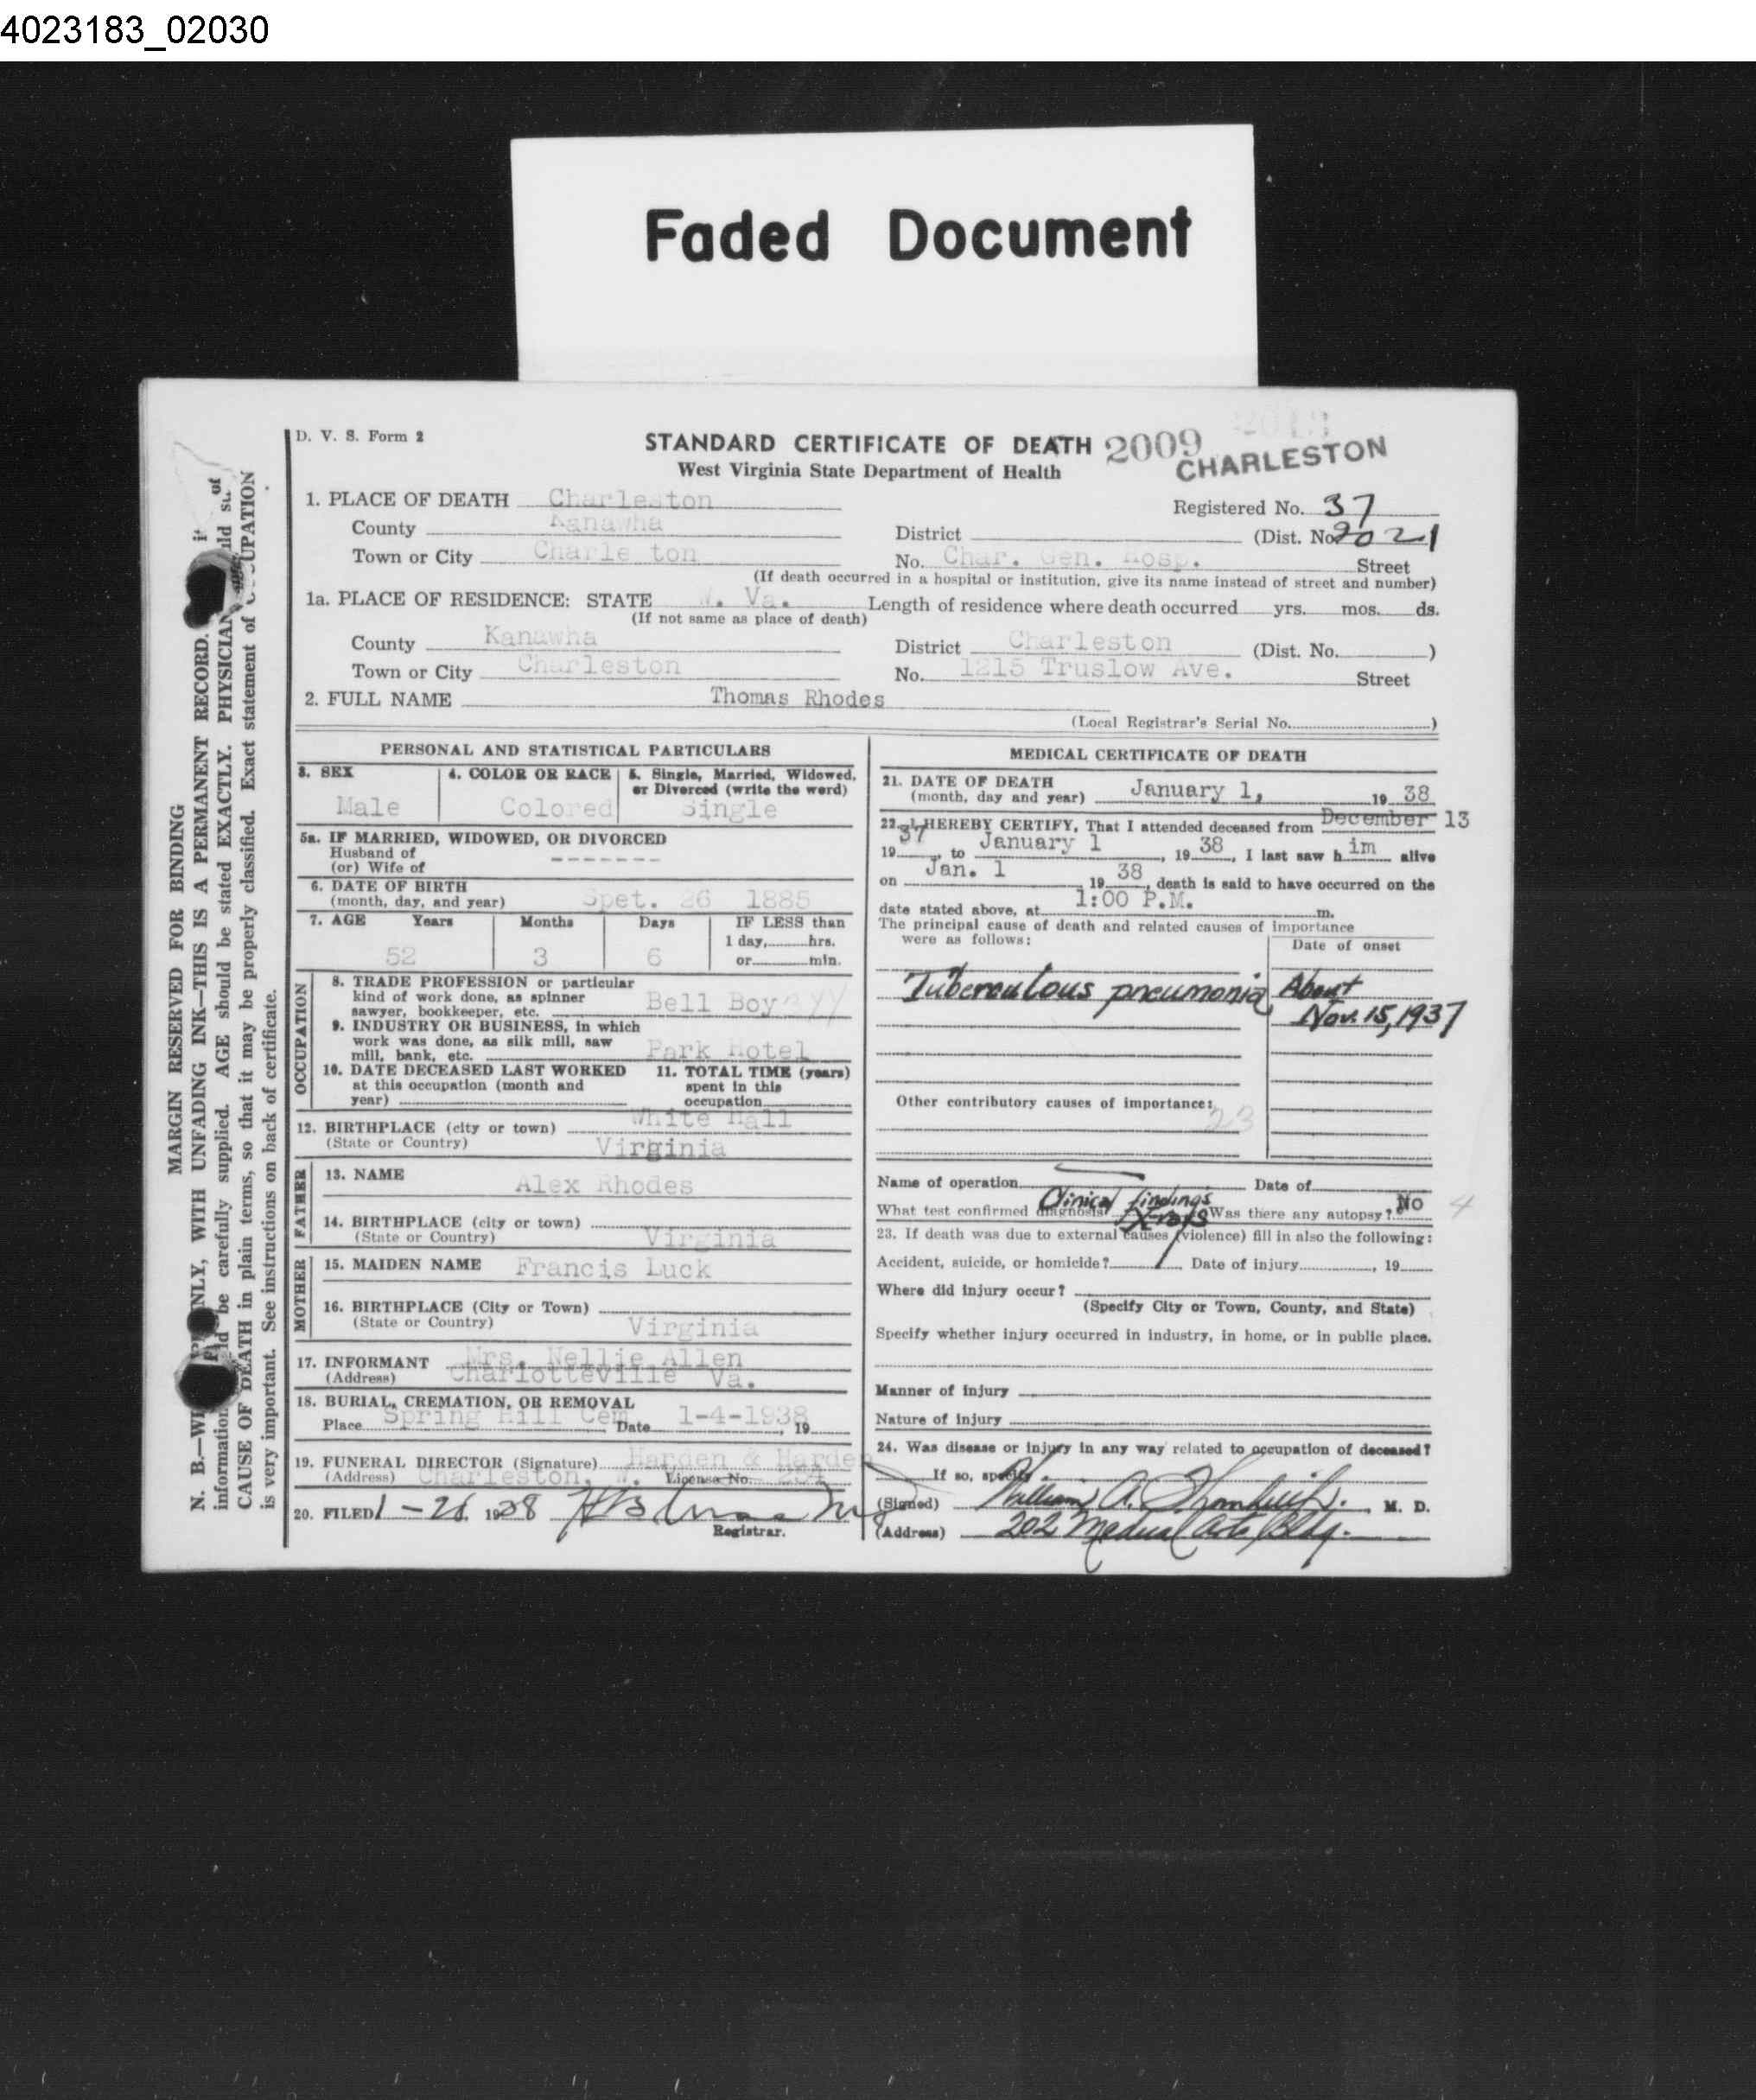 4023183_02030
Faded Document
D. V. S. Form 2
STANDARD CERTIFICATE OF DEATH 2009
CHARLESTON
West Virginia State Department of Health
1. PLACE OF DEATH Charleston
Registered No. 37
County Kanawha
District (Dist. No. 2021
Town or City Charle ton
No. Char. Gen. Hosp. Street
(If death occurred in a hospital or institution, give its name instead of street and number)
1a. PLACE OF RESIDENCE: STATE W. Va. Length of residence where death occurred yrs. mos. ds.
(If not same as place of death)
County Kanawha
District Charleston (Dist. No. )
Town or City Charleston
No. 1215 Truslow Ave. Street
2. FULL NAME Thomas Rhodes
(Local Registrar's Serial No. )
PERSONAL AND STATISTICAL PARTICULARS
3. SEX
Male
4. COLOR OR RACE
Colored
5. Single, Married, Widowed,
or Divorced (write the word)
Single
5a. IF MARRIED, WIDOWED, OR DIVORCED
Husband of
(or) Wife of
-------
6. DATE OF BIRTH
(month, day, and year) Spet. 26 1885
7. AGE Years Months Days IF LESS than
1 day, hrs.
52 3 6 or min.
OCCUPATION
8. TRADE PROFESSION or particular
kind of work done, as spinner
sawyer, bookkeeper, etc. Bell Boy
9. INDUSTRY OR BUSINESS, in which
work was done, as silk mill, saw
mill, bank, etc. Park Hotel
10. DATE DECEASED LAST WORKED
at this occupation (month and
year)
11. TOTAL TIME (years)
spent in this
occupation
12. BIRTHPLACE (city or town) White Hall
(State or Country) Virginia
FATHER
13. NAME Alex Rhodes
14. BIRTHPLACE (city or town)
(State or Country) Virginia
MOTHER
15. MAIDEN NAME Francis Luck
16. BIRTHPLACE (City or Town)
(State or Country) Virginia
17. INFORMANT Mrs. Nellie Allen
(Address) Charlotteville Va.
18. BURIAL, CREMATION, OR REMOVAL
Place Spring Hill Cem Date 1-4-1938, 19
19. FUNERAL DIRECTOR (Signature) Harden & Harden
(Address) Charleston, W. License No. 264
20. FILED 1-26 1938
Registrar.
MEDICAL CERTIFICATE OF DEATH
21. DATE OF DEATH
(month, day and year) January 1, 19 38
22. I HEREBY CERTIFY, That I attended deceased from December 13
19 37, to January 1, 19 38, I last saw h im alive
on Jan. 1 19 38, death is said to have occurred on the
date stated above, at 1:00 P.M. m.
The principal cause of death and related causes of importance
were as follows:
Date of onset
Tuberculous pneumonia About
Nov. 15, 1937
Other contributory causes of importance:
23
Name of operation Date of
What test confirmed diagnosis? Clinical findings X-rays Was there any autopsy? No 4
23. If death was due to external causes (violence) fill in also the following:
Accident, suicide, or homicide? Date of injury , 19
Where did injury occur?
(Specify City or Town, County, and State)
Specify whether injury occurred in industry, in home, or in public place.
Manner of injury
Nature of injury
24. Was disease or injury in any way related to occupation of deceased?
If so, specify
(Signed) William A. M. D.
(Address) 202 Medical Arts Bldg.
MARGIN RESERVED FOR BINDING
NLY, WITH UNFADING INK—THIS IS A PERMANENT RECORD.
be carefully supplied. AGE should be stated EXACTLY. PHYSICIAN
CAUSE OF DEATH in plain terms, so that it may be properly classified. Exact statement of OCCUPATION
is very important. See instructions on back of certificate.